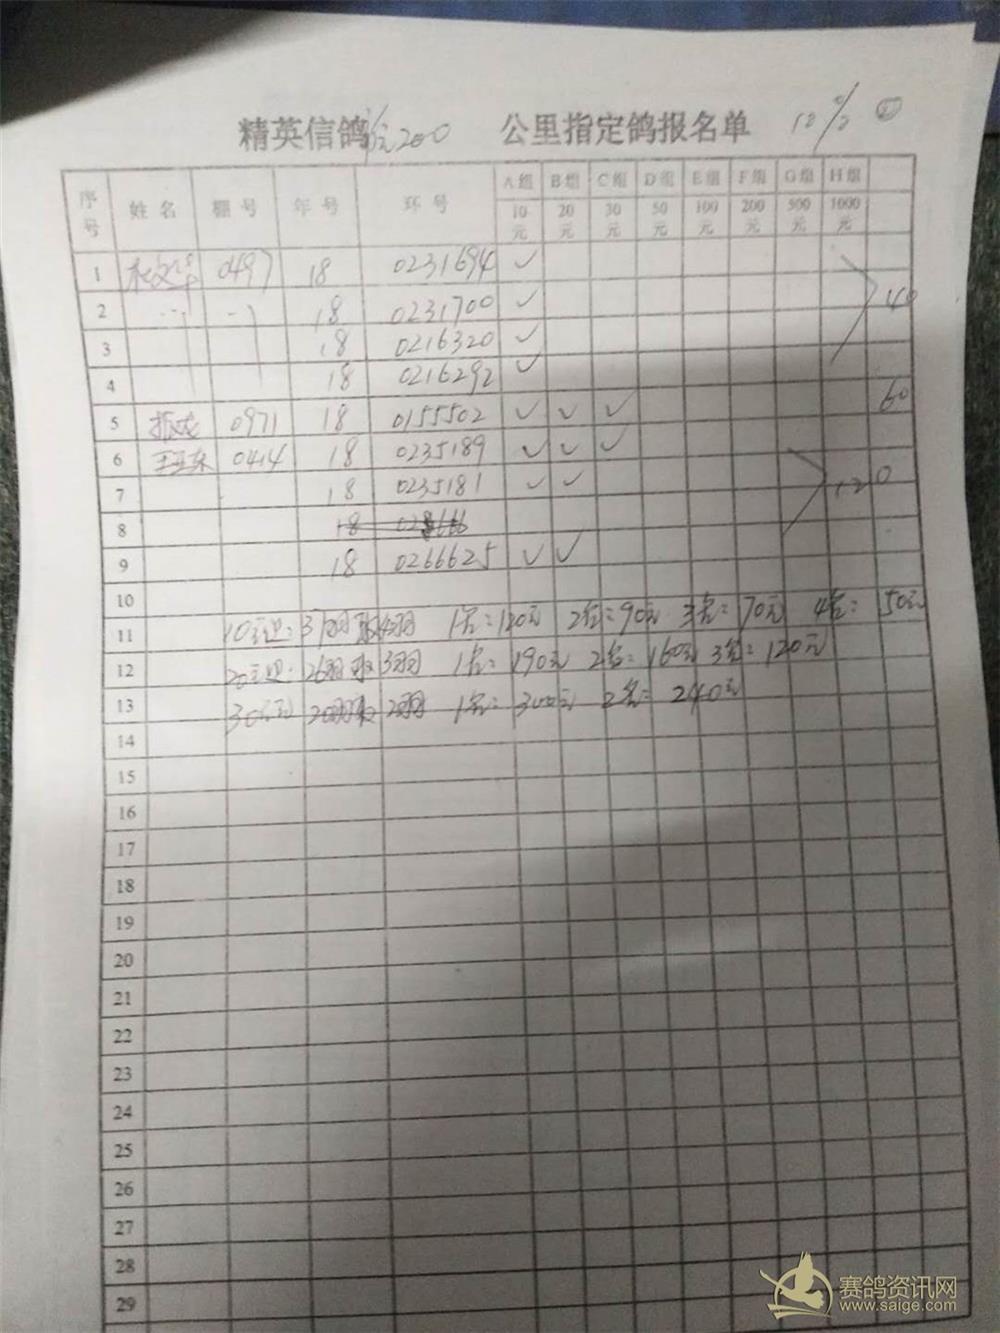 精英信鸽 200 公里指定鸽报名单 10/2 ②
序号 姓名 棚号 年号 环号 A组 B组 C组 D组 E组 F组 G组 H组
10元 20元 30元 50元 100元 200元 500元 1000元
1 0497 18 0231694 ✓
2 18 0231700 ✓ 40
3 18 0216320 ✓
4 18 0216292 ✓
5 0971 18 0155502 ✓ ✓ ✓ 60
6 0414 18 0235189 ✓ ✓ ✓
7 18 0235181 ✓ ✓ 120
8 18
9 18 0266625 ✓ ✓
10
11 10元 37羽取4羽 1名=120元 2名=90元 3名=70元 4名=50元
12 20元 26羽取3羽 1名=190元 2名=160元 3名=120元
13 30元 20羽取2羽 1名=300元 2名=240元
14
15
16
17
18
19
20
21
22
23
24
25
26
27
28
29
赛鸽资讯网
www.saige.com